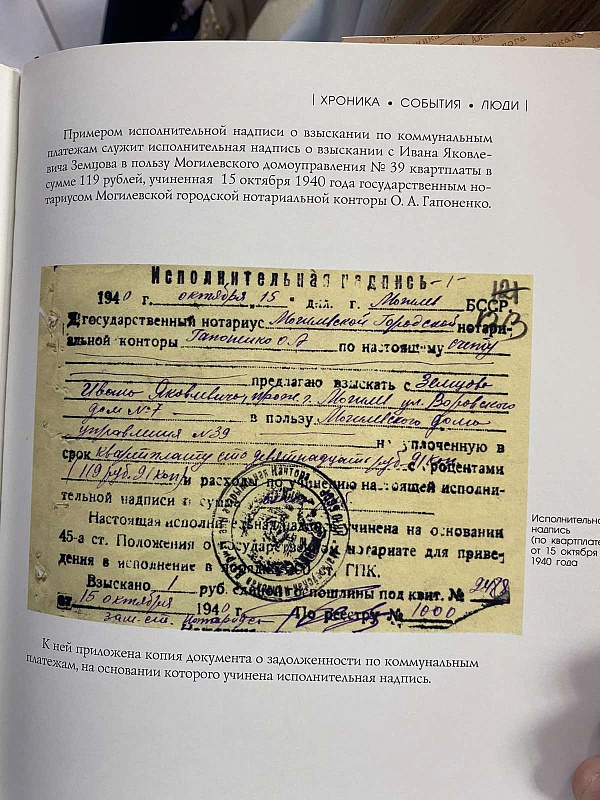 | ХРОНИКА • СОБЫТИЯ • ЛЮДИ |
Примером исполнительной надписи о взыскании по коммунальным
платежам служит исполнительная надпись о взыскании с Ивана Яковле-
вича Земцова в пользу Могилевского домоуправления № 39 квартплаты в
сумме 119 рублей, учиненная 15 октября 1940 года государственным но-
тариусом Могилевской городской нотариальной конторы О. А. Гапоненко.
Исполнительная надпись -1-
1940 г. октября 15 дня. г. Могилев БССР
Я государственный нотариус Могилевской Городской нотари-
альной конторы Гапоненко О.А по настоящему счету
предлагаю взыскать с Земцова
Ивана Яковлевича, прож. г. Могилев ул. Воровского
дом №7 в пользу Могилевского домо
управления №39 неуплоченную в
срок квартплату сто девятнадцать руб. 91 коп с процентами
(119 руб. 91 коп) и расходы по учинению настоящей исполни-
тельной надписи в сумме
Настоящая исполнительная надпись учинена на основании
45-а ст. Положения о государственном нотариате для приве-
дения в исполнение в порядке ГПК.
Взыскано 1 руб. единой госпошлины под квит. № 2488
15 октября 1940 г. По реестру № 1000
зам. ст. нотариус
Исполнительно
надпись
(по квартплате
от 15 октября
1940 года
К ней приложена копия документа о задолженности по коммунальным
платежам, на основании которого учинена исполнительная надпись.